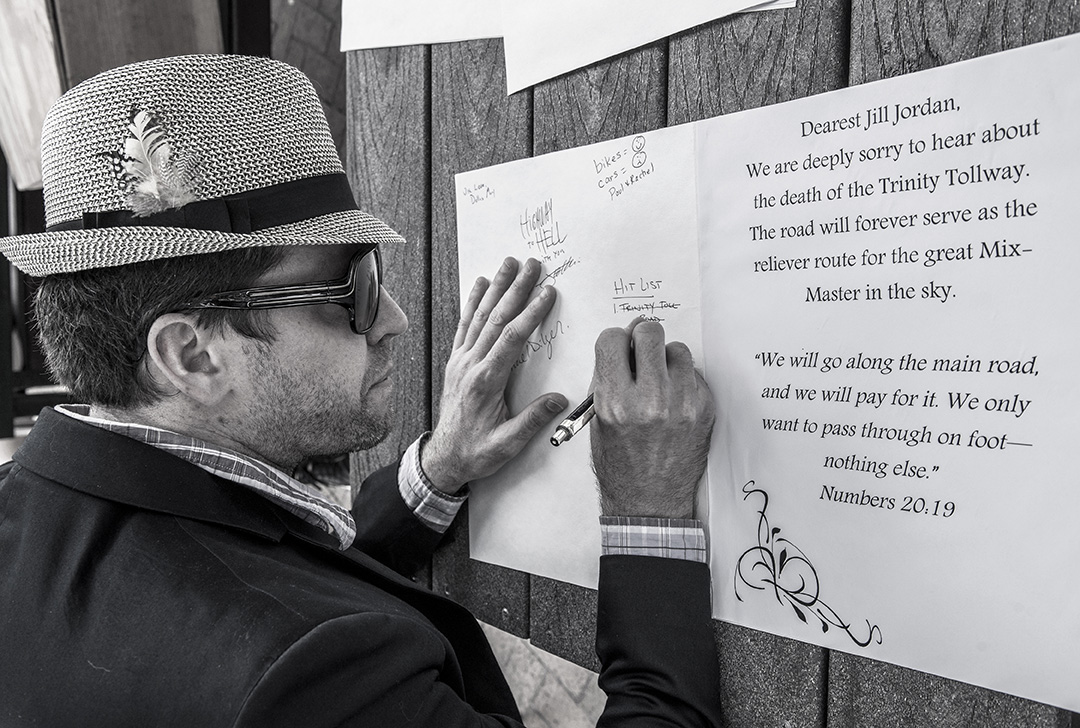 bikes = ☺
cars = ☹
Paul & Rachel
HIGHWAY
TO HELL
HIT LIST
1 TRINITY TOLL
ROAD
Dearest Jill Jordan,
We are deeply sorry to hear about
the death of the Trinity Tollway.
The road will forever serve as the
reliever route for the great Mix-
Master in the sky.
“We will go along the main road,
and we will pay for it. We only
want to pass through on foot—
nothing else.”
Numbers 20:19